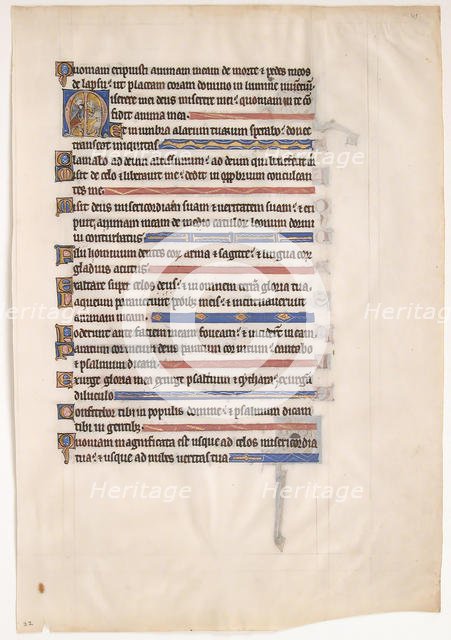 Quoniam eripuisti animam meam de morte & pedes meos
de lapsu: ut placeam coram domino in lumine
Miserere mei deus miserere mei: quoniam in te con
fidit anima mea.
Et in umbra alarum tuarum sperabo: donec
transeat iniquitas.
Clamabo ad deum altissimum: ad deum qui
Misit de celo & liberavit me: dedit in opprobrium conculcan
tes me.
Misit deus misericordiam suam & veritatem suam: & eri
puit animam meam de medio catulorum leonum dormi
vi conturbatus.
Filii hominum dentes eorum arma & sagitte: & lingua eorum
gladius acutus.
Exaltare super celos deus: & in omnem terram gloria tua.
Laqueum paraverunt pedibus meis: & incurvaverunt
animam meam.
Foderunt ante faciem meam foveam: & inciderunt in eam.
Paratum cor meum deus paratum cor meum: cantabo
& psalmum dicam.
Exurge gloria mea exurge psalterium & cythara: exurgam
diluculo.
Confitebor tibi in populis domine: & psalmum dicam
tibi in gentibus.
Quoniam magnificata est usque ad celos misericordia
tua: & usque ad nubes veritas tua.
Heritage
Images
32